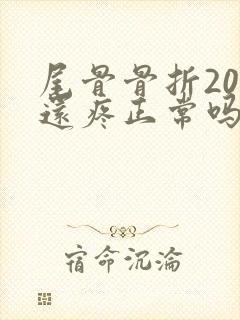 尾骨骨折20
還疼正常吗
宿命沉淪